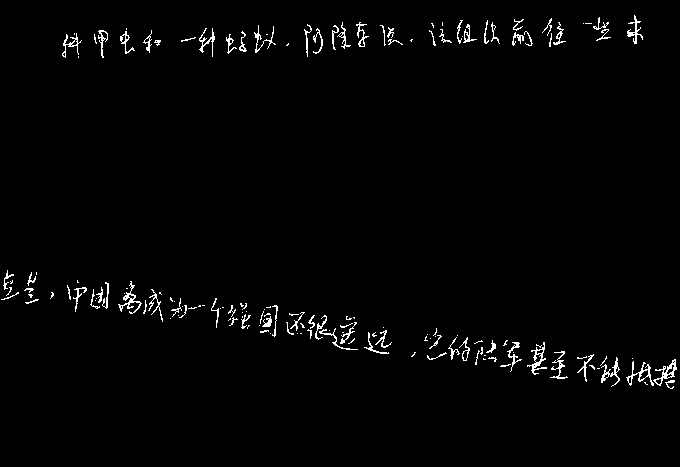 科甲虫和一种蚂蚁.阿除存说.该组织前往一些未
点是,中国离成为一个强国还很遥远,它的陆军甚至不能抵挡